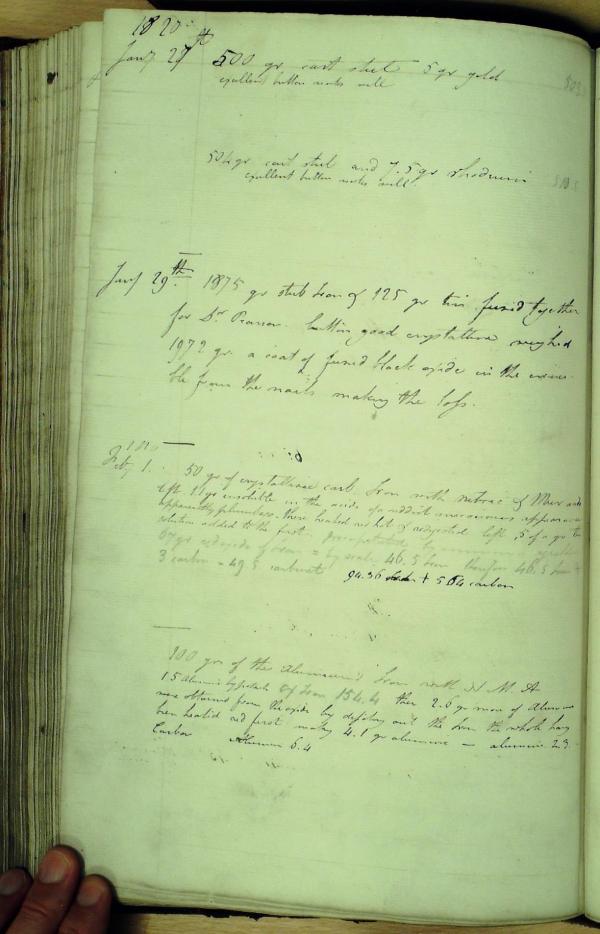 1820
Jany 27th 500 gr cast steel 5 gr gold
excellent button works well
504 gr cast steel and 7.5 gr rhodium
excellent button works well
Jany 29th 1875 gr stub Iron & 125 gr tin fused together
for Dr Pearson. button good crystalline weighed
1972 gr. a coat of fused black oxide in the cruci-
ble from the nails making the loss.
Feby 1. 50 gr of crystalline carb. Iron with nitric & Mur acids
left 1.1 gr insoluble in the acids of a reddish appearance
apparently these heated red hot & redigested left .5 of a gr the
solution added to the first precipitated by
67 gr oxide of Iron = by scale 46.5 Iron therefore 46.5 Iron +
3 carbon = 49.5 carburet 94.36 + 5.64 carbon
100 grs of the Alumine Iron with N. M. A
1.5 Alumine of Iron 154.4 then 2.0 gr more of Alumine
were obtained from the oxide by the Iron the whole having
been heated red first making 4.1 gr alumine = alumium 2.3
Carbon Alumine 6.4